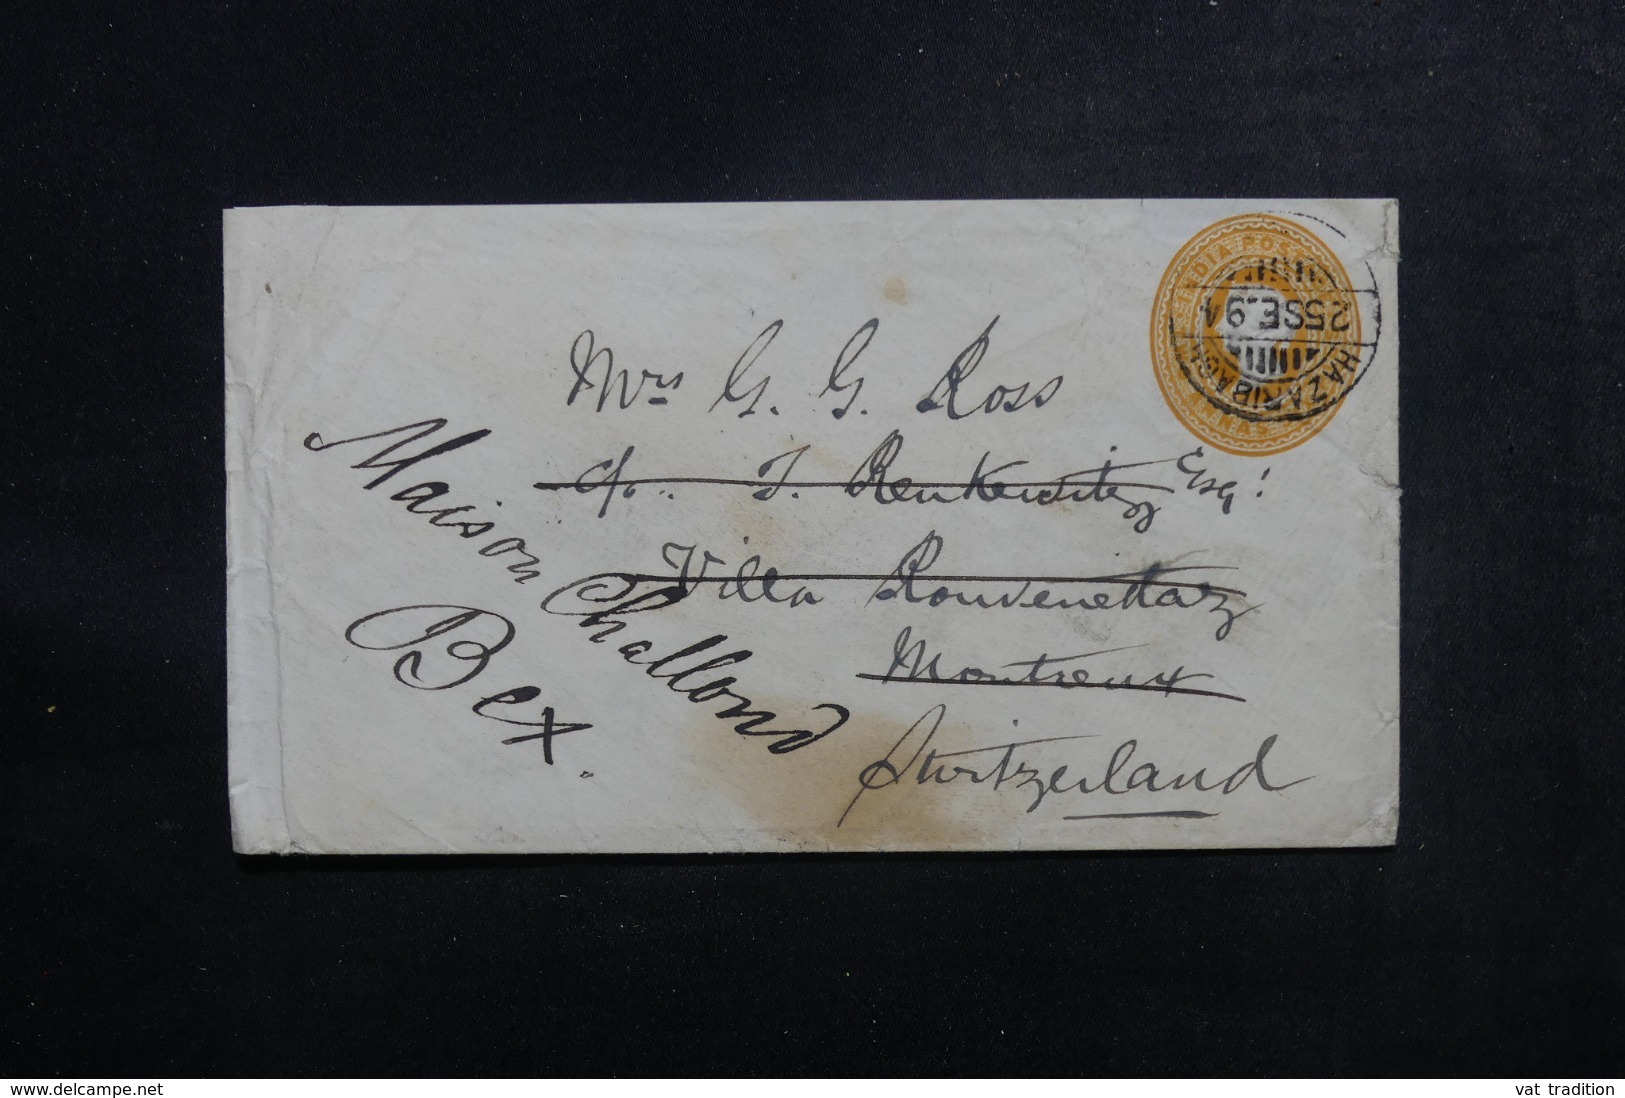 INDIA POSTAGE
HAZARIBAGH
25 SE. 94
Mrs G. G. Ross
c/o. J. Renkewitz Esq!
Villa Rouvenettaz
Montreux
Switzerland
Maison Challond
Bex.
delcampe.net
vat_tradition